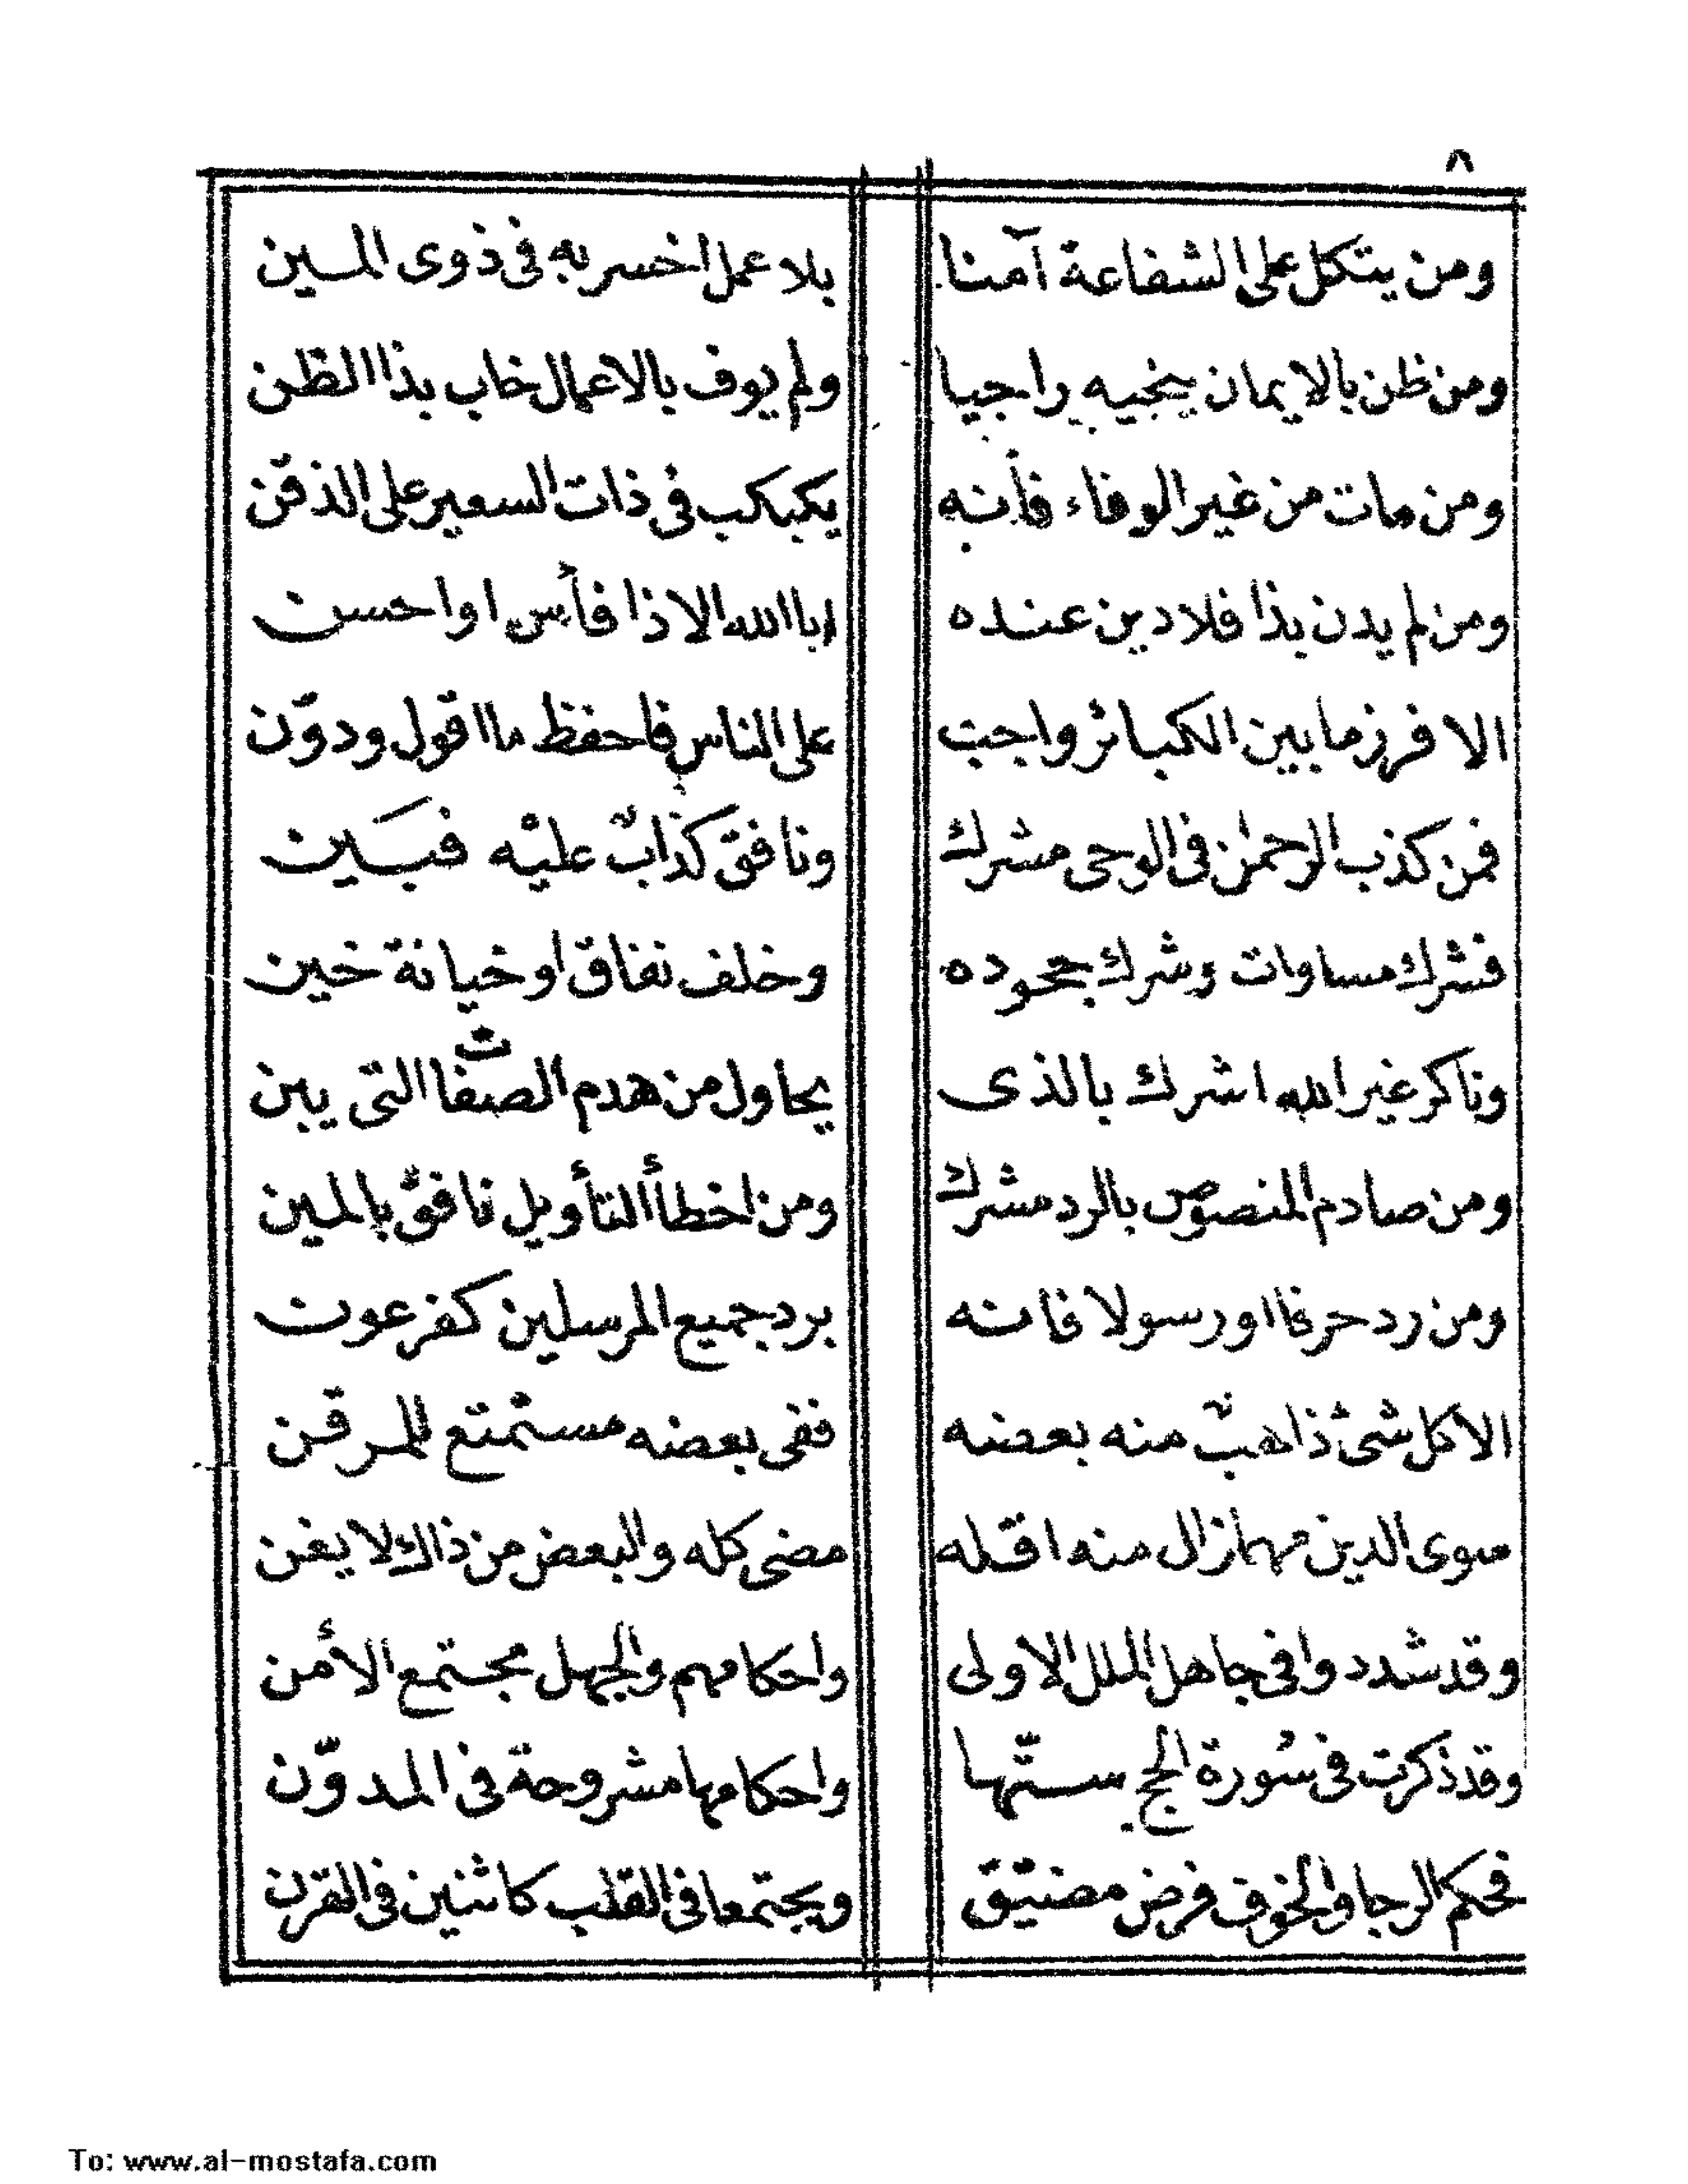 ٨
ومن يتكل على الشفاعة آمنا بلا عمل اخسر به فى ذوى المين
ومن ظن بالايمان ينجيه راجيا ولم يوف بالاعمال خاب بذا الظن
ومن مات من غير الوفاء فأنه يكبكب فى ذات السعير على الذقن
ومن لم يدن بذا فلا دين عنده ابا الله الا ذا فأس او احسن
الا فرز ما بين الكبائر واجب على الناس فاحفظ ما اقول ودوّن
فمن كذب الرحمن فى الوحى مشرك ونافق كذابٌ عليه فبَين
فشرك مساوات وشرك جحوده وخلف نفاق او خيانة خين
وناكر غير الله اشرك بالذى يحاول من هدم الصفات التى يبن
ومن صادم المنصوص بالرد مشرك ومن اخطأ التأويل نافق بالمين
ومن رد حرفا او رسولا فانه برد جميع المرسلين كفرعون
الا كل شئ ذاهبٌ منه بعضه ففى بعضه مستمتع للمرقن
سوى الدين مهما زال منه اقله مضى كله والبعض من ذاك لا يغن
وقد شددوا فى جاهل الملل الاولى واحكامهم والجهل مجتمع الأمن
وقد ذكرت فى سورة الحج ستّها واحكامها مشروحة فى المدوّن
فحكم الرجا والخوف فرض مضيّق ويجتمعا فى القلب كاثنين فى القرن
To: www.al-mostafa.com